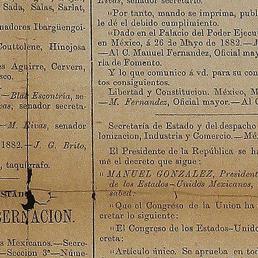 Sada, Salas, Sarlat,
nadores Ibargüengoi-
Couttolene, Hinojosa
es Aguirre, Cervera,
sco.
—Blas Escontría, se-
vas, senador secreta-
—M. Rivas, senador
1882.—J. G. Brito,
, taquígrafo.
ESTADO
BERNACION.
s Mexicanos.—Secre-
—Seccion 3ª—Núme-
Rivas, senador secretario.
"Por tanto, mando se imprima, publi
le dé el debido cumplimiento.
"Dado en el Palacio del Poder Ejecu
en México, á 26 de Mayo de 1882.—
—Al C. Manuel Fernandez, Oficial mayor
ría de Fomento.
Y lo que comunico á vd. para su con
tos consiguientes.
Libertad y Constitucion. México, M
—M. Fernandez, Oficial mayor.—Al C.
Secretaría de Estado y del despacho
lonizacion, Industria y Comercio.—Mé
El Presidente de la República se ha
me el decreto que sigue:
"MANUEL GONZALEZ, President
de los Estados-Unidos Mexicanos,
sabed:
"Que el Congreso de la Union ha
cretar lo siguiente:
"El Congreso de los Estados-Unidos
creta:
"Artículo único. Se aprueba en tod